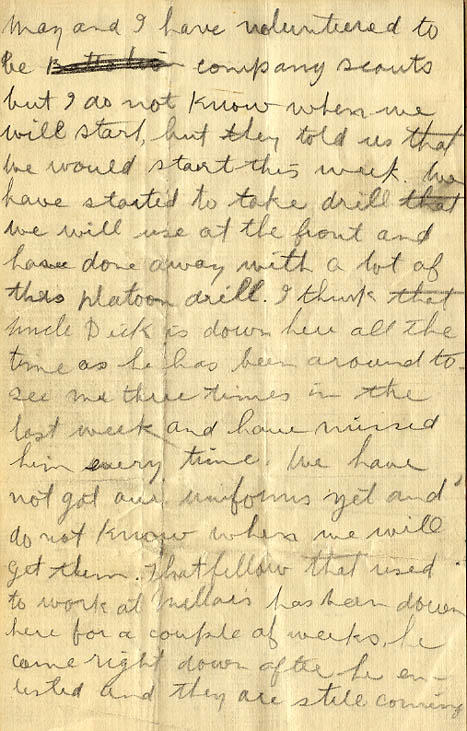 May and I have volunteered to
be company scouts
but I do not know when we
will start, but they told us that
we would start this week. We
have started to take drill that
we will use at the front and
have done away with a lot of
this platoon drill. I think that
Uncle Dick is down here all the
time as he has been around to
see me three times in the
last week and have missed
him every time. We have
not got our uniforms yet and
do not know when we will
get them. That fellow that used
to work at Millars has been down
here for a couple of weeks, he
came right down after he en-
listed and they are still coming